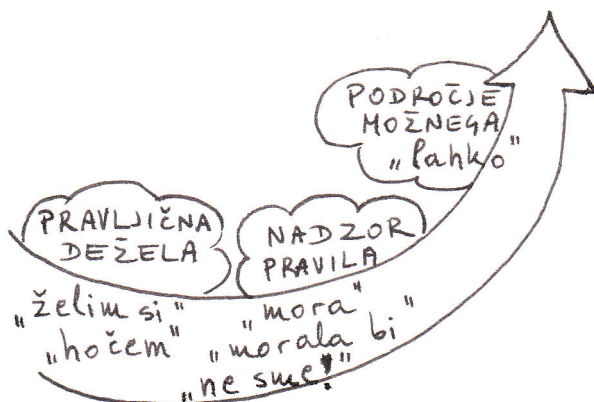 PODROČJE
MOŽNEGA
„lahko"
PRAVLJIČNA
DEŽELA
NADZOR
PRAVILA
„želim si"
„hočem"
„mora"
„morala bi"
„ne sme!"